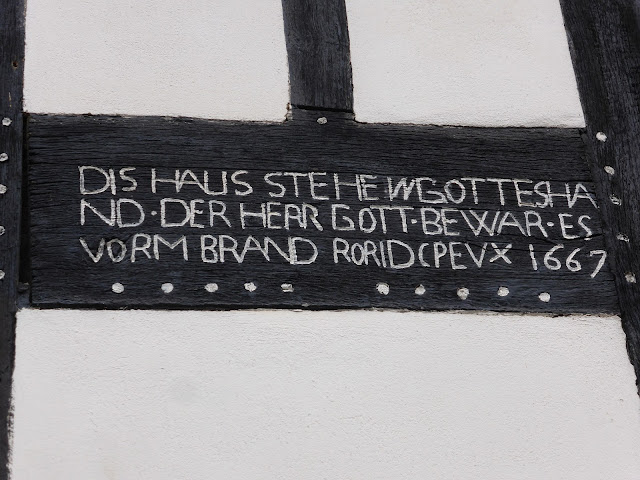 DIS HAUS STEHE IN GOTTES HA
ND · DER HERR GOTT · BEWAR · ES
VORM BRAND RORIDCPEVX 1667